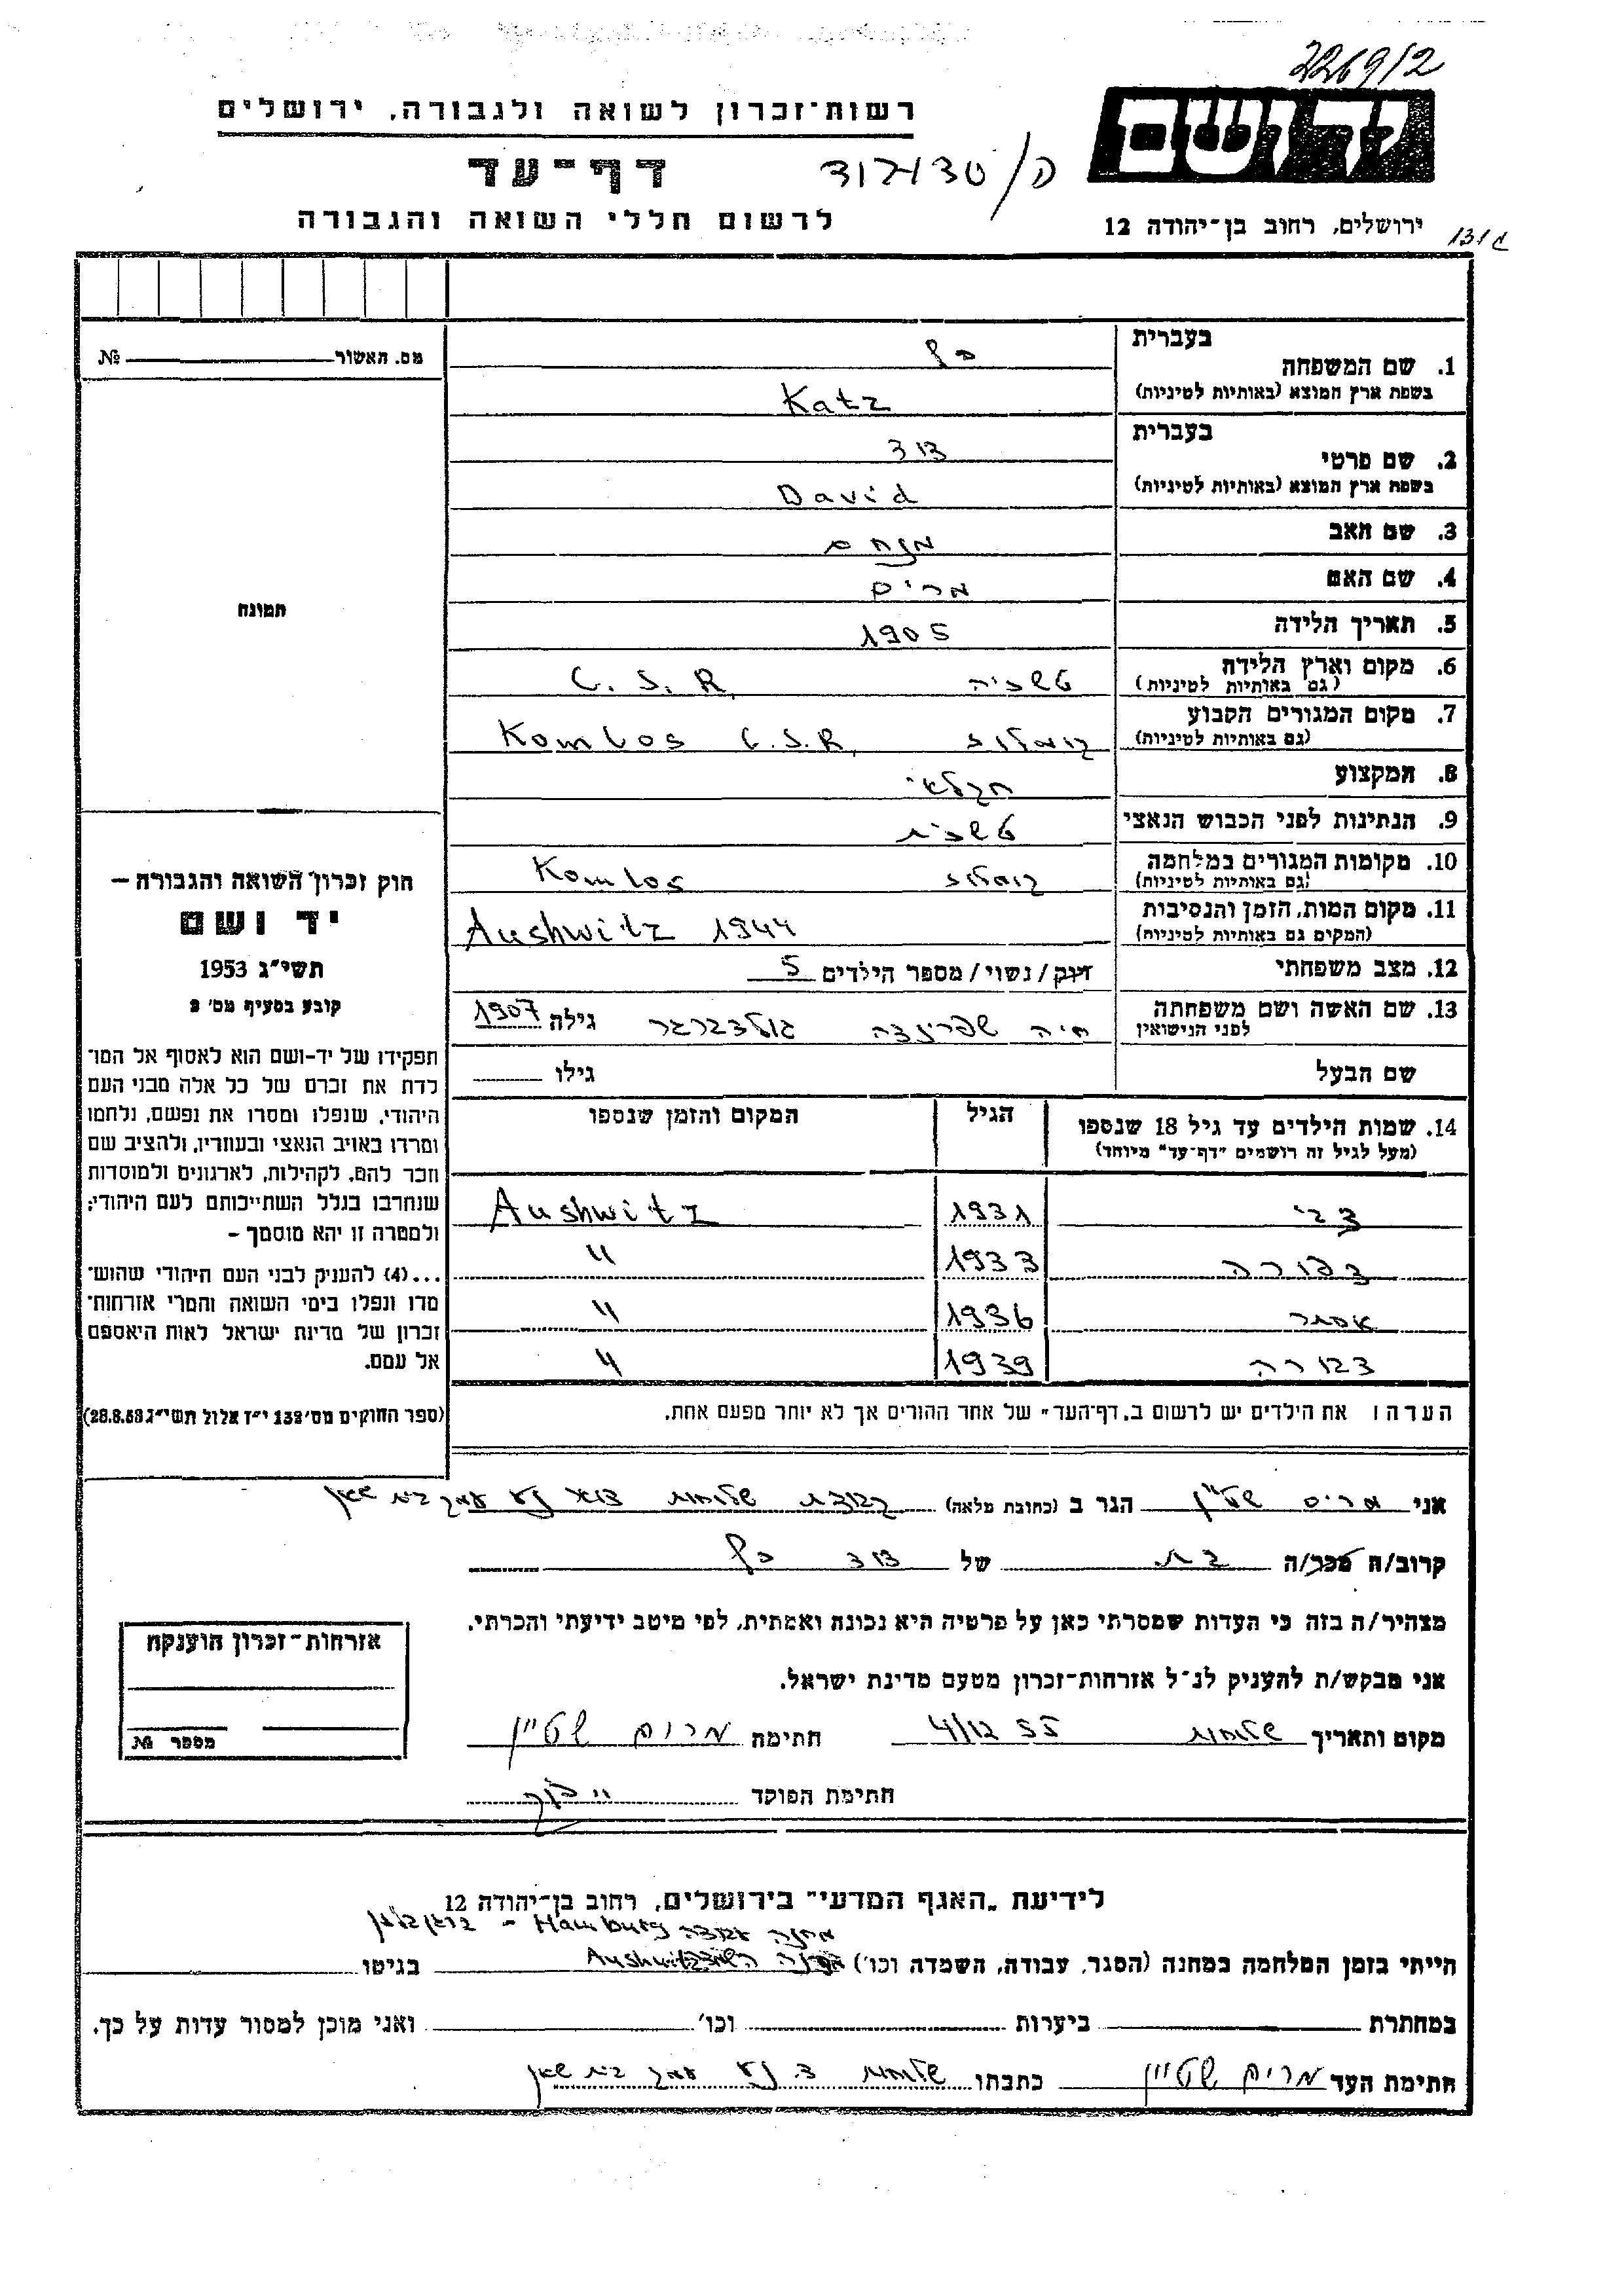 2269/2
רשות-זכרון לשואה ולגבורה, ירושלים
יד ושם
דף-עד
לרשום חללי השואה והגבורה
ירושלים, רחוב בן-יהודה 12
מס. האשור № 
בעברית
1. שם המשפחה כץ
בשפת ארץ המוצא (באותיות לטיניות) Katz
בעברית
2. שם פרטי דוד
בשפת ארץ המוצא (באותיות לטיניות) David
3. שם האב מנחם
4. שם האם מרים
5. תאריך הלידה 1905
6. מקום וארץ הלידה טשכיה C. S. R.
(גם באותיות לטיניות)
7. מקום המגורים הקבוע קומלוש Komlos C.S.R.
(גם באותיות לטיניות)
8. המקצוע חקלאי
9. הנתינות לפני הכבוש הנאצי טשכית
10. מקומות המגורים במלחמה קומלוש Komlos
(גם באותיות לטיניות)
11. מקום המות, הזמן והנסיבות Aushwitz 1944
(המקום גם באותיות לטיניות)
12. מצב משפחתי רווק/נשוי/מספר הילדים 5
13. שם האשה ושם משפחתה חיה שפרינצה גולדברגר גילה 1907
לפני הנישואין
שם הבעל גילו
14. שמות הילדים עד גיל 18 שנספו הגיל המקום והזמן שנספו
(מעל לגיל זה רושמים "דף-עד" מיוחד)
צבי 1931 Aushwitz
צפורה 1933 "
אסתר 1936 "
דבורה 1939 "
הערה: את הילדים יש לרשום ב"דף-העד" של אחד ההורים אך לא יותר מפעם אחת.
תמונה
חוק זכרון השואה והגבורה –
יד ושם
תשי"ג 1953
קובע בסעיף מס' 2
תפקידו של יד-ושם הוא לאסוף אל המו־
לדת את זכרם של כל אלה מבני העם
היהודי, שנפלו ומסרו את נפשם, נלחמו
ומרדו באויב הנאצי ובעוזריו, ולהציב שם
וזכר להם, לקהילות, לארגונים ולמוסדות
שנחרבו בגלל השתייכותם לעם היהודי;
ולמטרה זו יהא מוסמך –
...(4) להעניק לבני העם היהודי שהוש־
מדו ונפלו בימי השואה והמרי אזרחות־
זכרון של מדינת ישראל לאות היאספם
אל עמם.
(ספר החוקים מס' 132 י"ז אלול תשי"ג 28.8.53)
אני מרים שטיין הגר ב (כתובת מלאה) קבוצת שלוחות דואר נע עמק בית שאן
קרוב/ה מכר/ה בת של דוד כץ
מצהיר/ה בזה כי העדות שמסרתי כאן על פרטיה היא נכונה ואמתית, לפי מיטב ידיעתי והכרתי.
אני מבקש/ת להעניק לנ"ל אזרחות-זכרון מטעם מדינת ישראל.
מקום ותאריך שלוחות 4/12 55 חתימה מרים שטיין
חתימת הפוקד
אזרחות-זכרון הוענקה
מספר №
לידיעת "האגף המדעי" בירושלים, רחוב בן-יהודה 12
מחנה עבודה Hamburg - ברגן בלזן
הייתי בזמן המלחמה במחנה (הסגר, עבודה, השמדה וכו') Aushwitz בגיטו
במחתרת ביערות וכו' ואני מוכן למסור עדות על כך.
חתימת העד מרים שטיין כתבתו שלוחות ד. נע עמק בית שאן